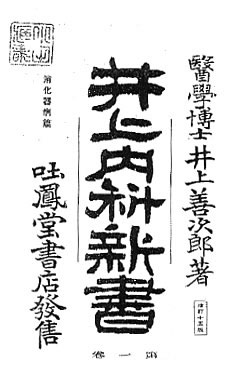 醫學博士井上善次郎著
改訂十五版
井上内科新書
第一卷
消化器病篇
吐鳳堂書店發售